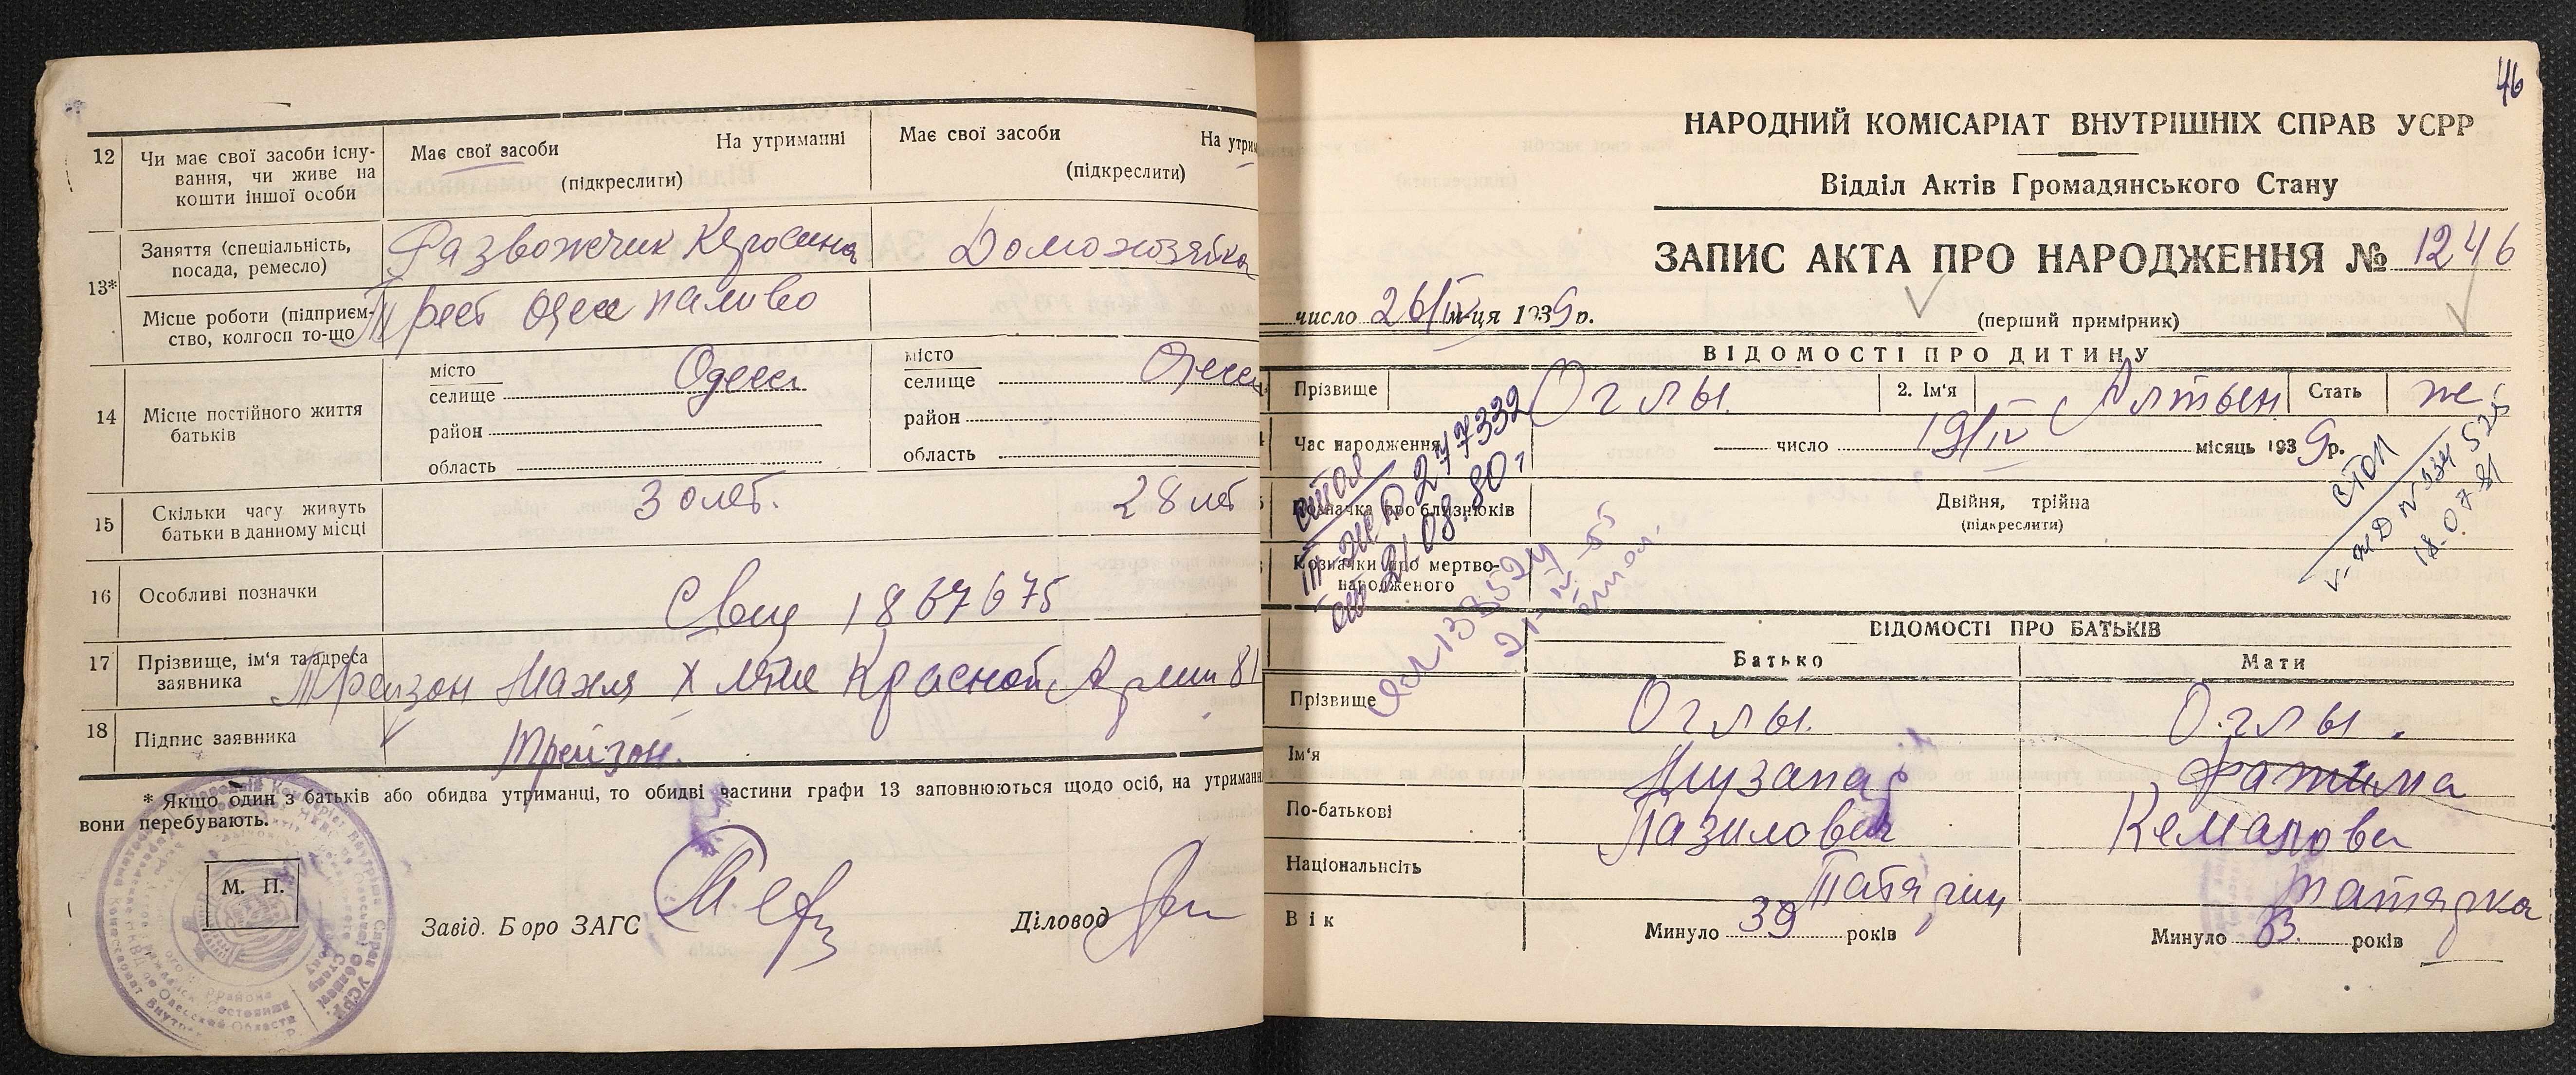 12 Чи має свої засоби існу-
вання, чи живе на
кошти іншої особи
Має свої засоби На утриманні
(підкреслити)
Має свої засоби На утрим
(підкреслити)
13* Заняття (спеціальність,
посада, ремесло)
Развожчик Керосина Домохозяйка
Місце роботи (підприєм-
ство, колгосп то-що
Трест Одес паливо
14 Місце постійного життя
батьків
місто
селище Одесса
район
область
місто
селище Одесса
район
область
15 Скільки часу живуть
батьки в данному місці
30 лет. 28 лет
16 Особливі позначки
Свид 1867675
17 Прізвище, ім'я та адреса
заявника
Трейзон Красной Армии 81
18 Підпис заявника
Трейзон.
* Якщо один з батьків або обидва утриманці, то обидві частини графи 13 заповнюються щодо осіб, на утриманні
вони перебувають.
М. П.
Завід. Боро ЗАГС
Діловод
46
НАРОДНИЙ КОМІСАРІАТ ВНУТРІШНІХ СПРАВ УСРР
Відділ Актів Громадянського Стану
ЗАПИС АКТА ПРО НАРОДЖЕННЯ № 1246
число 26/IV м-ця 1939 р.
(перший примірник)
ВІДОМОСТІ ПРО ДИТИНУ
Прізвище Оглы. 2. Ім'я Алтын Стать же
Час народження число 19/IV місяць 1939 р.
Позначка про близнюків
Двійня, трійна
(підкреслити)
Козначки про мертво-
народженого
277332
21.08.80 г
21-IV-55
V-ЖД № 334525
18.07.81
ВІДОМОСТІ ПРО БАТЬКІВ
Батько Мати
Прізвище Оглы. Оглы.
Ім'я Музапар Фатима
По-батькові Пазилович Кемалова
Національнсіть Татарин татарка
Вік Минуло 39 років Минуло 33. років